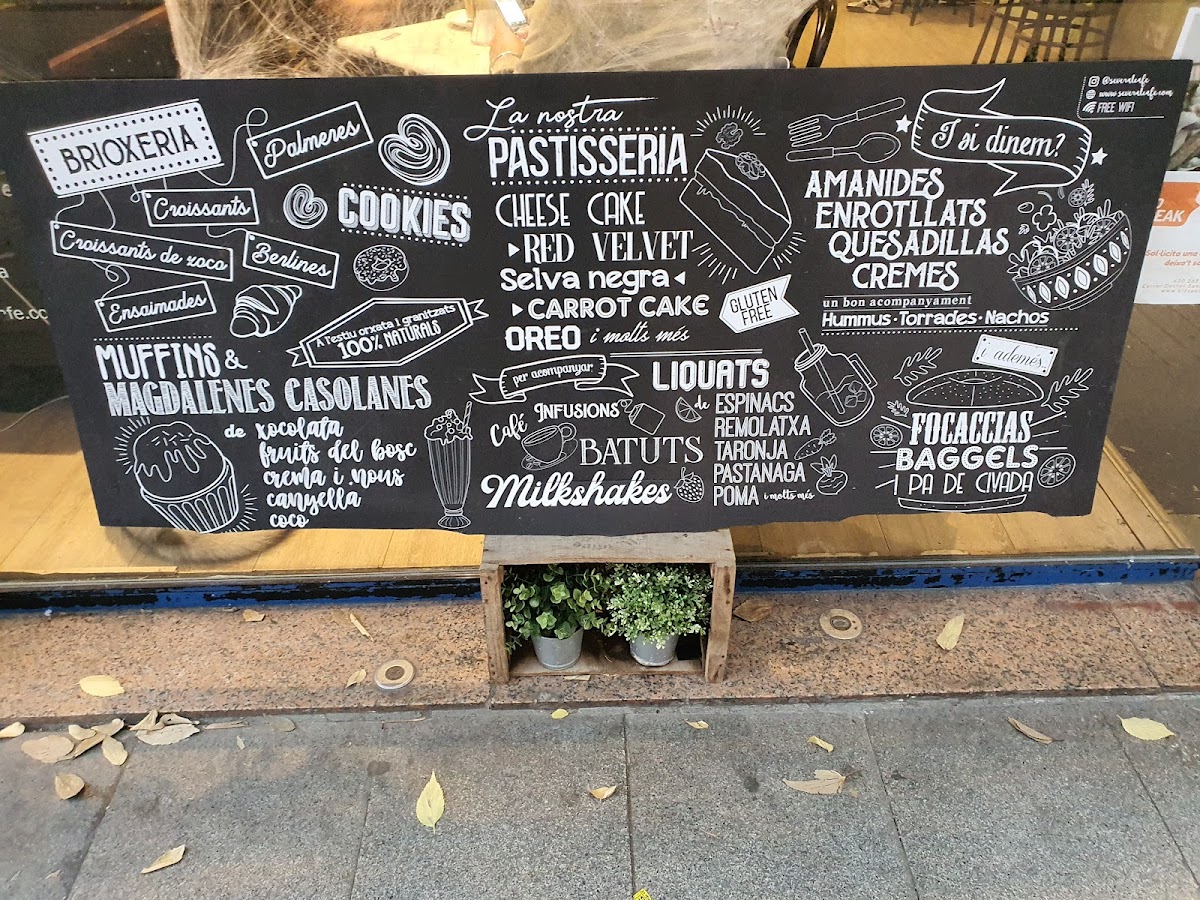 BRIOXERIA
Palmeres
Croissants
COOKIES
Croissants de xoco
Berlines
Ensaimades
A l'estiu orxata i granitzats
100% NATURALS
MUFFINS &
MAGDALENES CASOLANES
de xocolata
fruits del bosc
crema i nous
canyella
coco
La nostra
PASTISSERIA
CHEESE CAKE
RED VELVET
Selva negra
CARROT CAKE
OREO i molts més
GLUTEN
FREE
per acompanyar
Café
INFUSIONS
BATUTS
Milkshakes
LIQUATS
de ESPINACS
REMOLATXA
TARONJA
PASTANAGA
POMA i molts més
I si dinem?
AMANIDES
ENROTLLATS
QUESADILLAS
CREMES
un bon acompanyament
Hummus · Torrades · Nachos
i además
FOCACCIAS
BAGGELS
I PA DE CIVADA
FREE WIFI
EAK